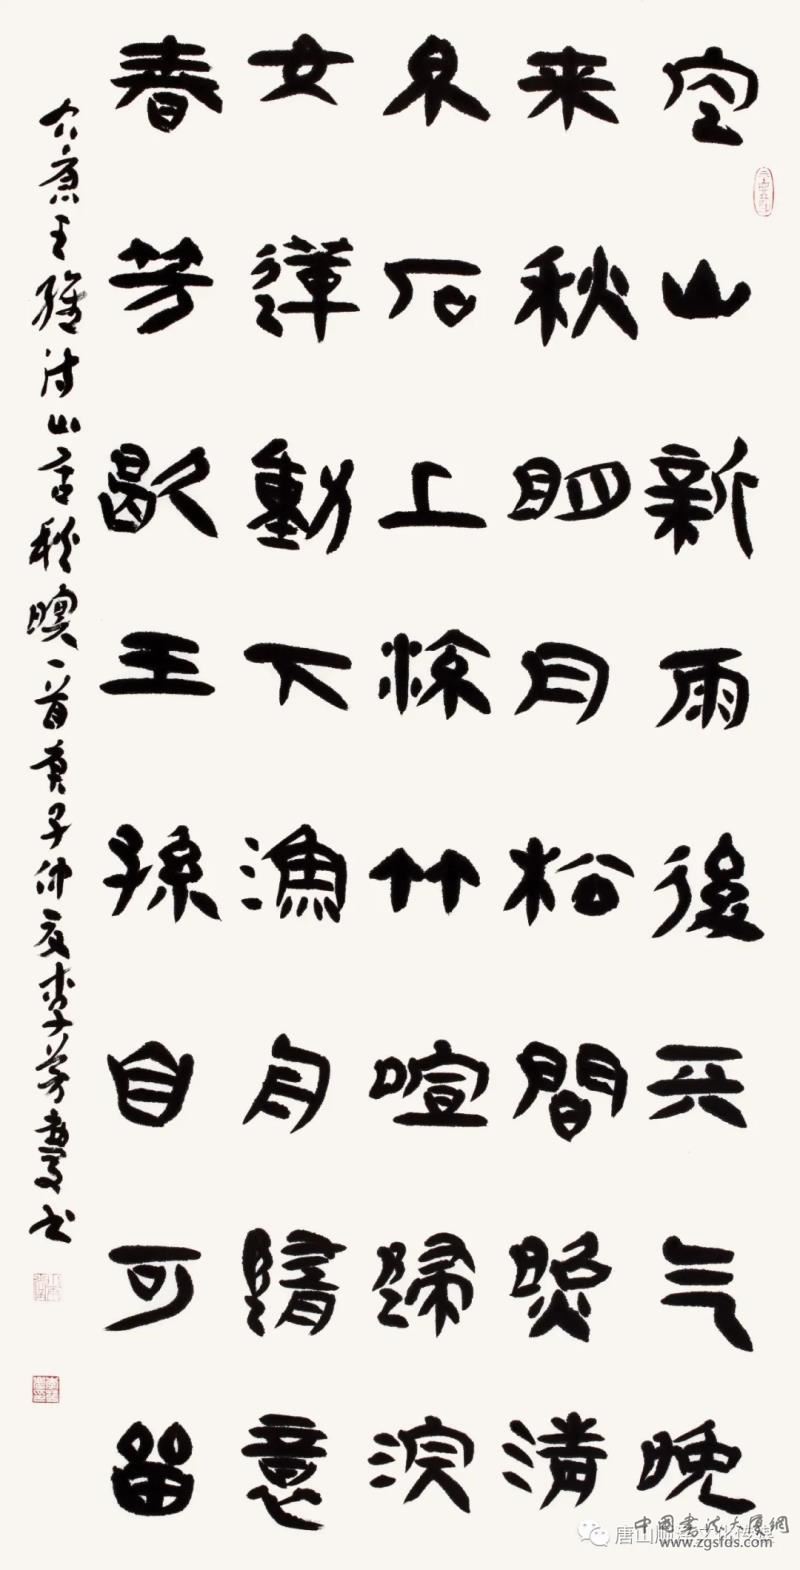 空山新雨後天气晚
来秋眀月松間照清
泉石上流竹喧歸浣
女蓮動下漁舟隨意
春芳歇王孫自可留
右唐王維诗山居秋暝一首庚子仲夏李芳书
唐山
中國書法大厦網
www.zgsfds.com